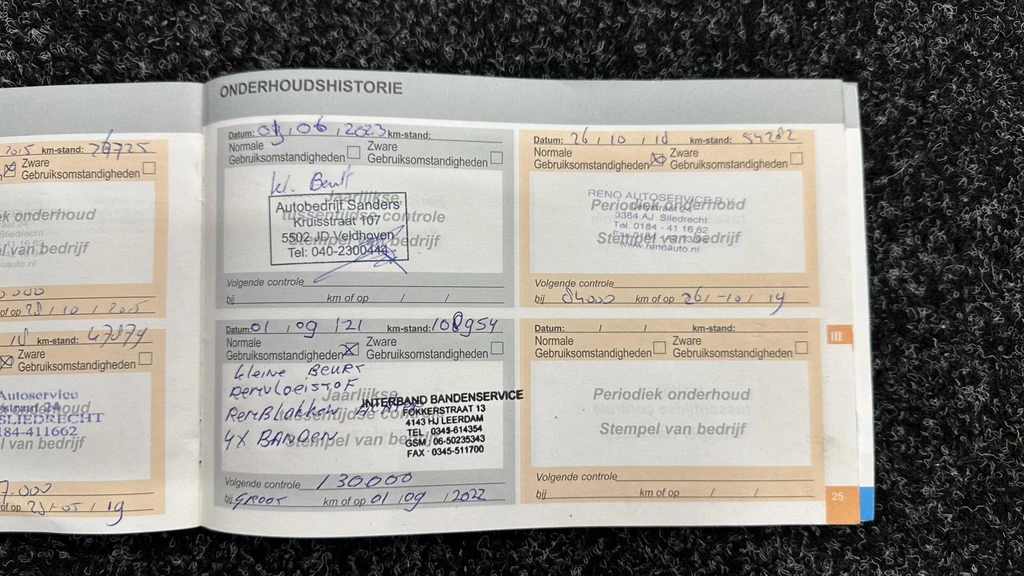 2015 km-stand: 26725
Zware
Gebruiksomstandigheden
ek onderhoud
Sliedrecht
el van bedrijf
of op 28 / 10 / 2015
18 km-stand: 47879
Zware
Gebruiksomstandigheden
Autoservice
straat 24
SLIEDRECHT
184-411662
el van bedrijf
7.000
of op
19
ONDERHOUDSHISTORIE
Datum: 01 / 06 / 2023 km-stand:
Normale Zware
Gebruiksomstandigheden Gebruiksomstandigheden
kl. Beurt
Jaarlijkse
tussentijdse controle
Stempel van bedrijf
Autobedrijf Sanders
Kruisstraat 107
5502 JD Veldhoven
Tel: 040-2300444
Volgende controle
bij km of op / /
Datum: 26 / 10 / 18 km-stand: 54282
Normale Zware
Gebruiksomstandigheden Gebruiksomstandigheden
Periodiek onderhoud
Stempel van bedrijf
RENO AUTOSERVICE
3364 AJ Sliedrecht
Tel. 0184 - 41 16 62
Volgende controle
bij 84000 km of op 26 / -10 / 19
Datum: 01 / 09 / 21 km-stand: 108954
Normale Zware
Gebruiksomstandigheden Gebruiksomstandigheden
kleine Beurt
Remvloeistof
Remblokken
4x BANDEN
Jaarlijkse
Stempel van bedrijf
INTERBAND BANDENSERVICE
FOKKERSTRAAT 13
4143 HJ LEERDAM
TEL. 0345-614354
GSM. 06-50235343
FAX 0345-511700
Volgende controle 130.000
bij GROOT km of op 01 / 09 / 2022
Datum: / / km-stand:
Normale Zware
Gebruiksomstandigheden Gebruiksomstandigheden
Periodiek onderhoud
Stempel van bedrijf
Volgende controle
bij km of op / /
III
25